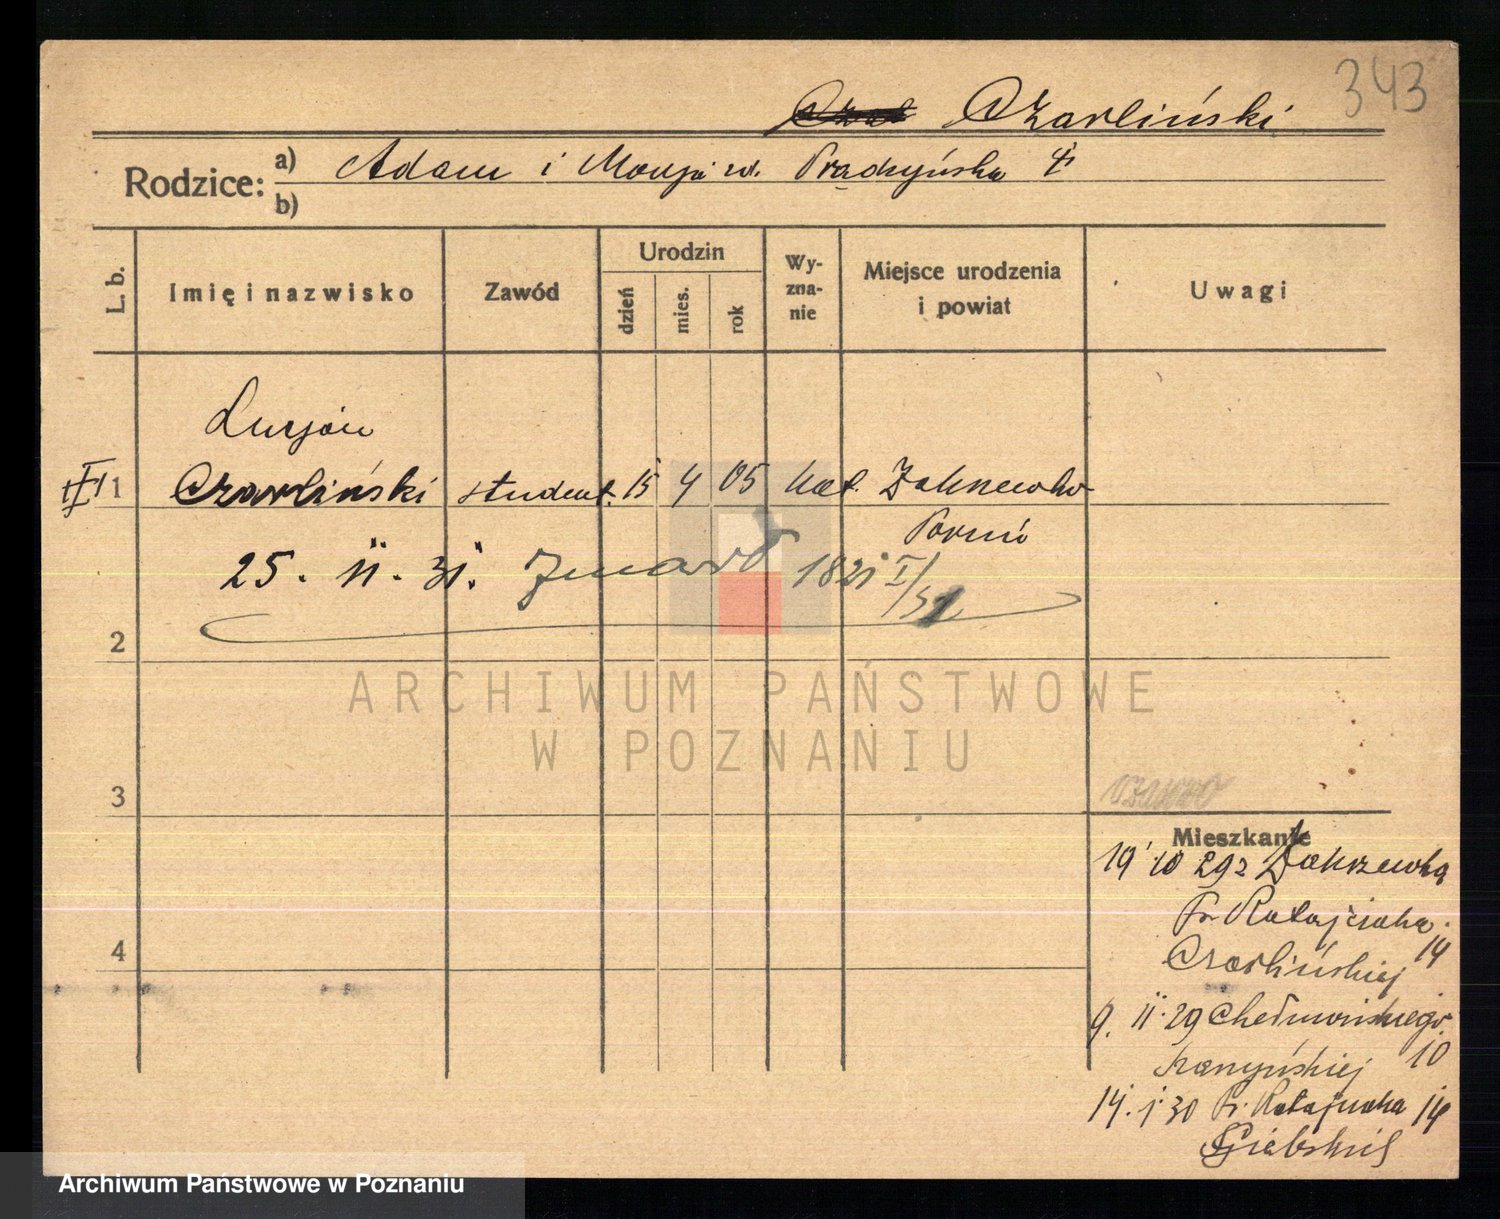 343
Czarliński
Rodzice: a) Adam i Marja ur. Prądzyńska
b)
L. b.
Imię i nazwisko
Zawód
Urodzin
dzień
mies.
rok
Wy-
zna-
nie
Miejsce urodzenia
i powiat
Uwagi
Lucjan
1 Czarliński student. 15 4 05 kat. Zakrzewko
Toruń
25. 11. 31. Zmarł 1821 I/31
2
3
4
Mieszkanie
19 10 29 z Zakrzewka
Pr. Ratajczaka 14
Czarlińskiej
9. 11. 29 Chełmońskiego 10
14. 1. 30 Pr. Ratajczaka 14
ARCHIWUM PAŃSTWOWE
W POZNANIU
Archiwum Państwowe w Poznaniu